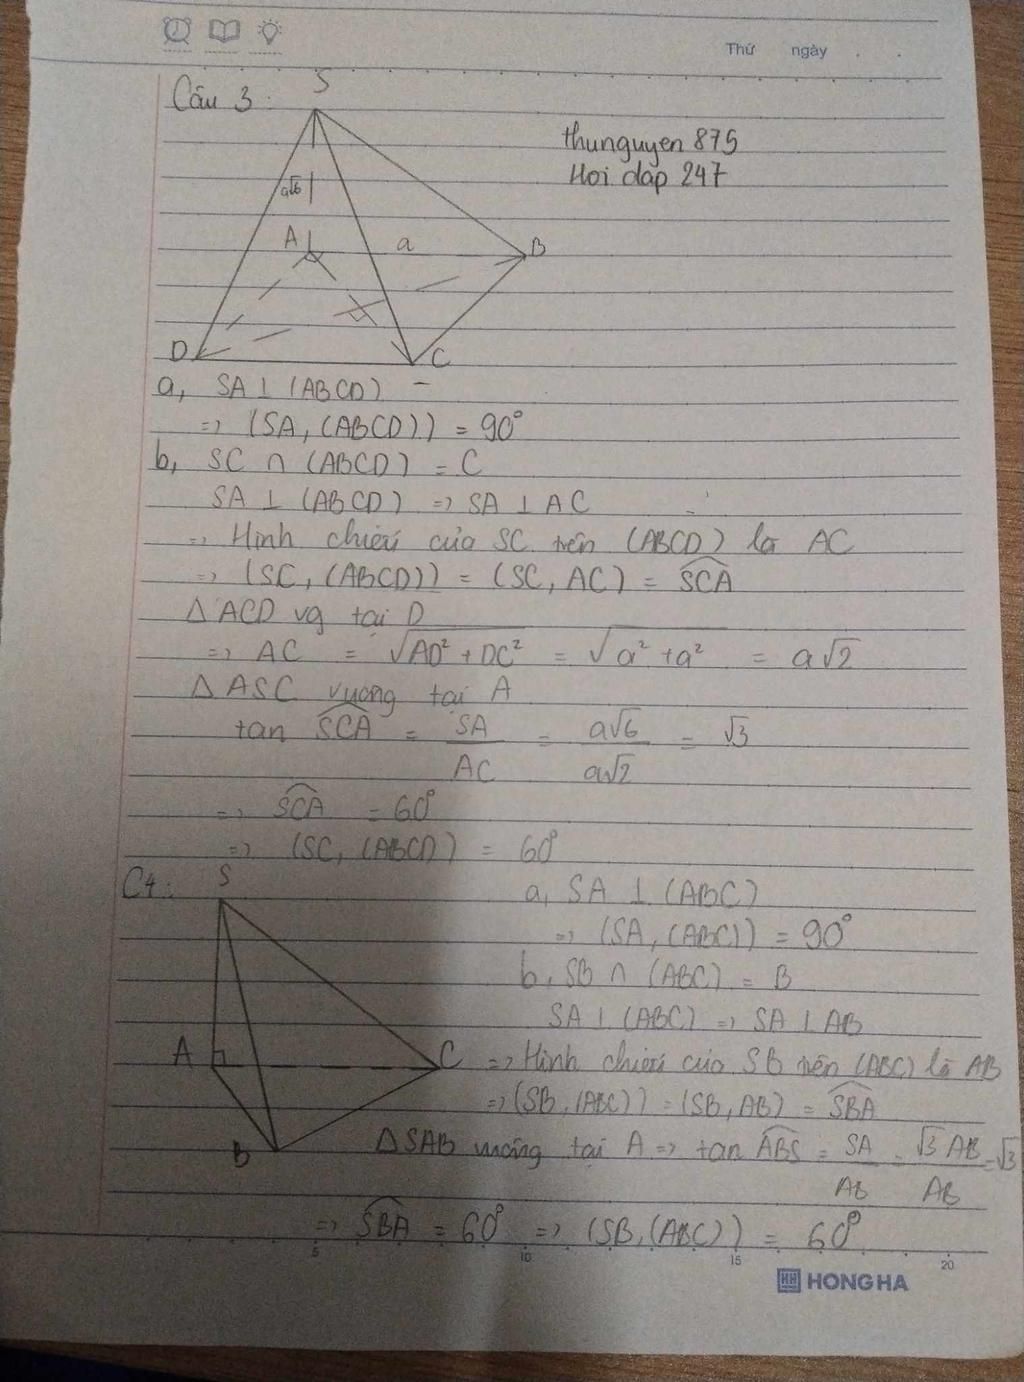 Thứ ngày
Câu 3:
S
thunguyen 875
Hoi dap 247
a√6
A
a
B
D
C
a, SA ⊥ (ABCD)
=> (SA, (ABCD)) = 90°
b, SC ∩ (ABCD) = C
SA ⊥ (ABCD) => SA ⊥ AC
=> Hình chiếu của SC trên (ABCD) là AC
=> (SC, (ABCD)) = (SC, AC) = \widehat{SCA}
Δ ACD vg tại D
=> AC = √(AD² + DC²) = √(a² + a²) = a√2
Δ ASC vuông tại A
tan \widehat{SCA} = SA/AC = a√6/a√2 = √3
=> \widehat{SCA} = 60°
=> (SC, (ABCD) = 60°
C4:
S
A
C
B
a, SA ⊥ (ABC)
=> (SA, (ABC)) = 90°
b, SB ∩ (ABC) = B
SA ⊥ (ABC) => SA ⊥ AB
=> Hình chiếu của SB trên (ABC) là AB
=> (SB, (ABC)) = (SB, AB) = \widehat{SBA}
Δ SAB vuông tại A => tan \widehat{ABS} = SA/AB = √3 AB/AB = √3
=> \widehat{SBA} = 60° => (SB, (ABC)) = 60°
5 10 15 20
HH HONG HA